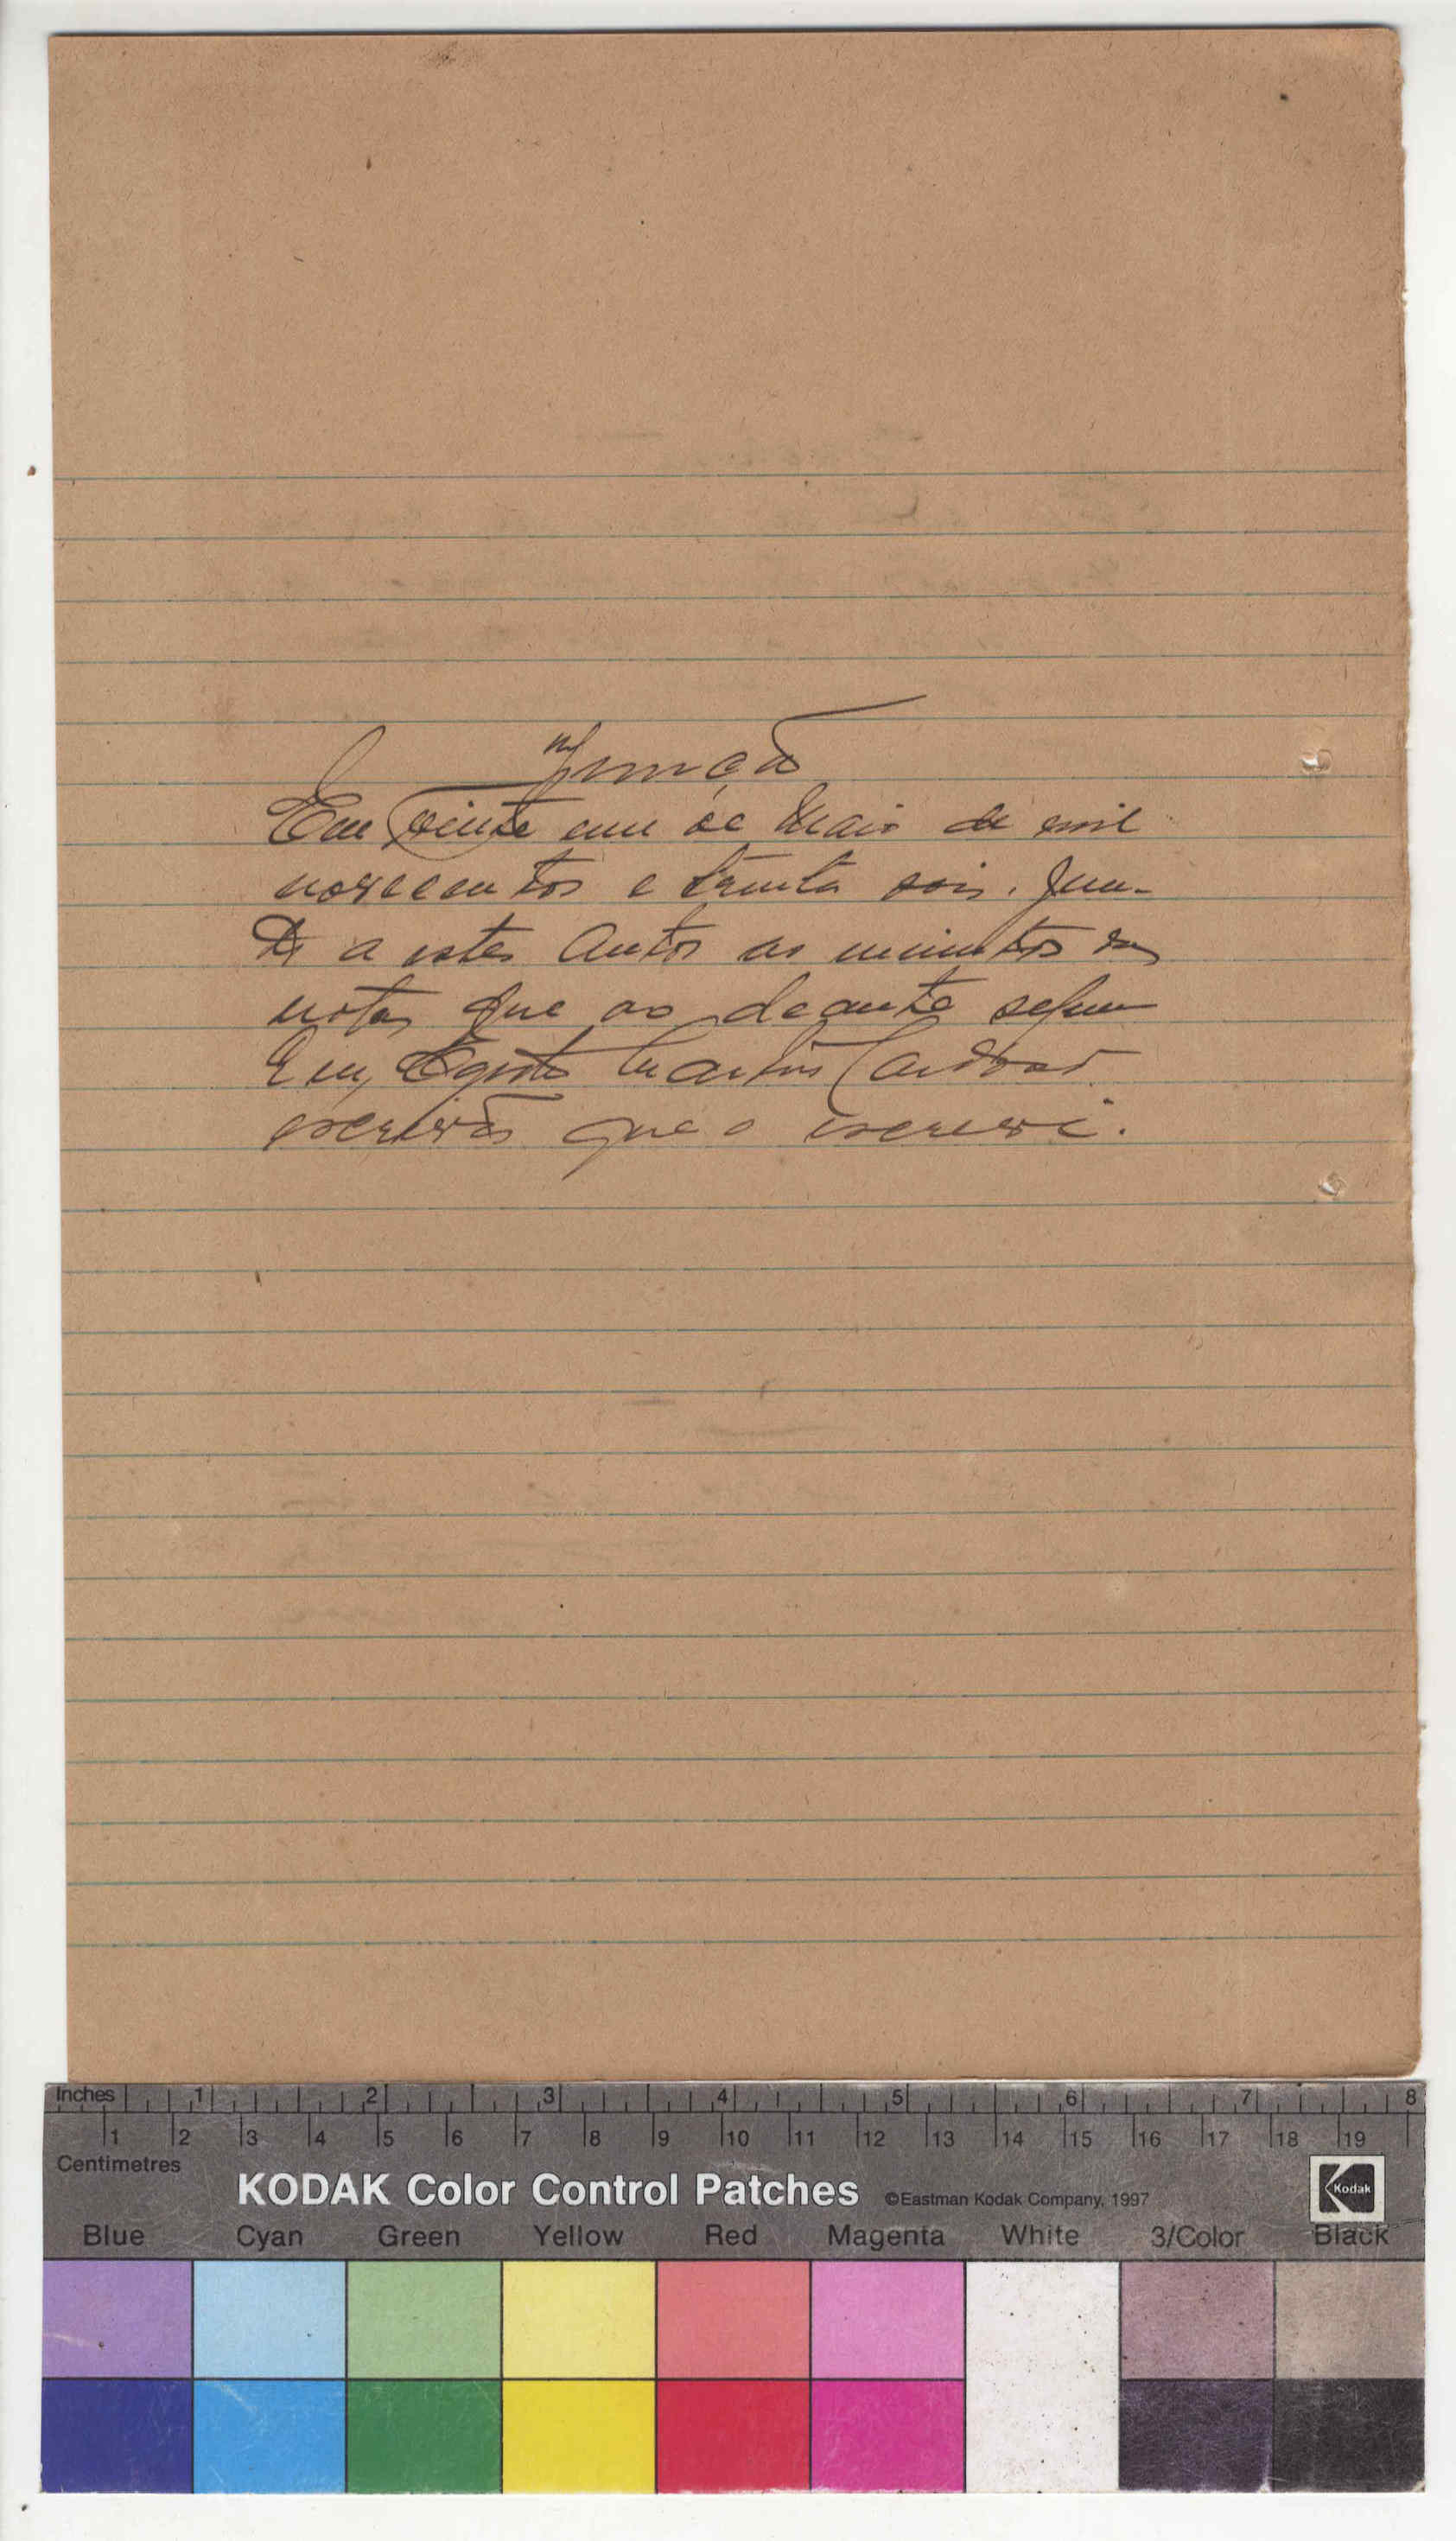 Junção
Em vinte um de Maio de mil
novecentos e trinta dois. Jun-
to a estes Autos as minutas
notas que ao deante segue
Eu, Martins Cardoso
escrivão que o escrevi.
Inches 1 2 3 4 5 6 7 8
1 2 3 4 5 6 7 8 9 10 11 12 13 14 15 16 17 18 19
Centimetres
KODAK Color Control Patches ©Eastman Kodak Company, 1997 Kodak
Blue Cyan Green Yellow Red Magenta White 3/Color Black